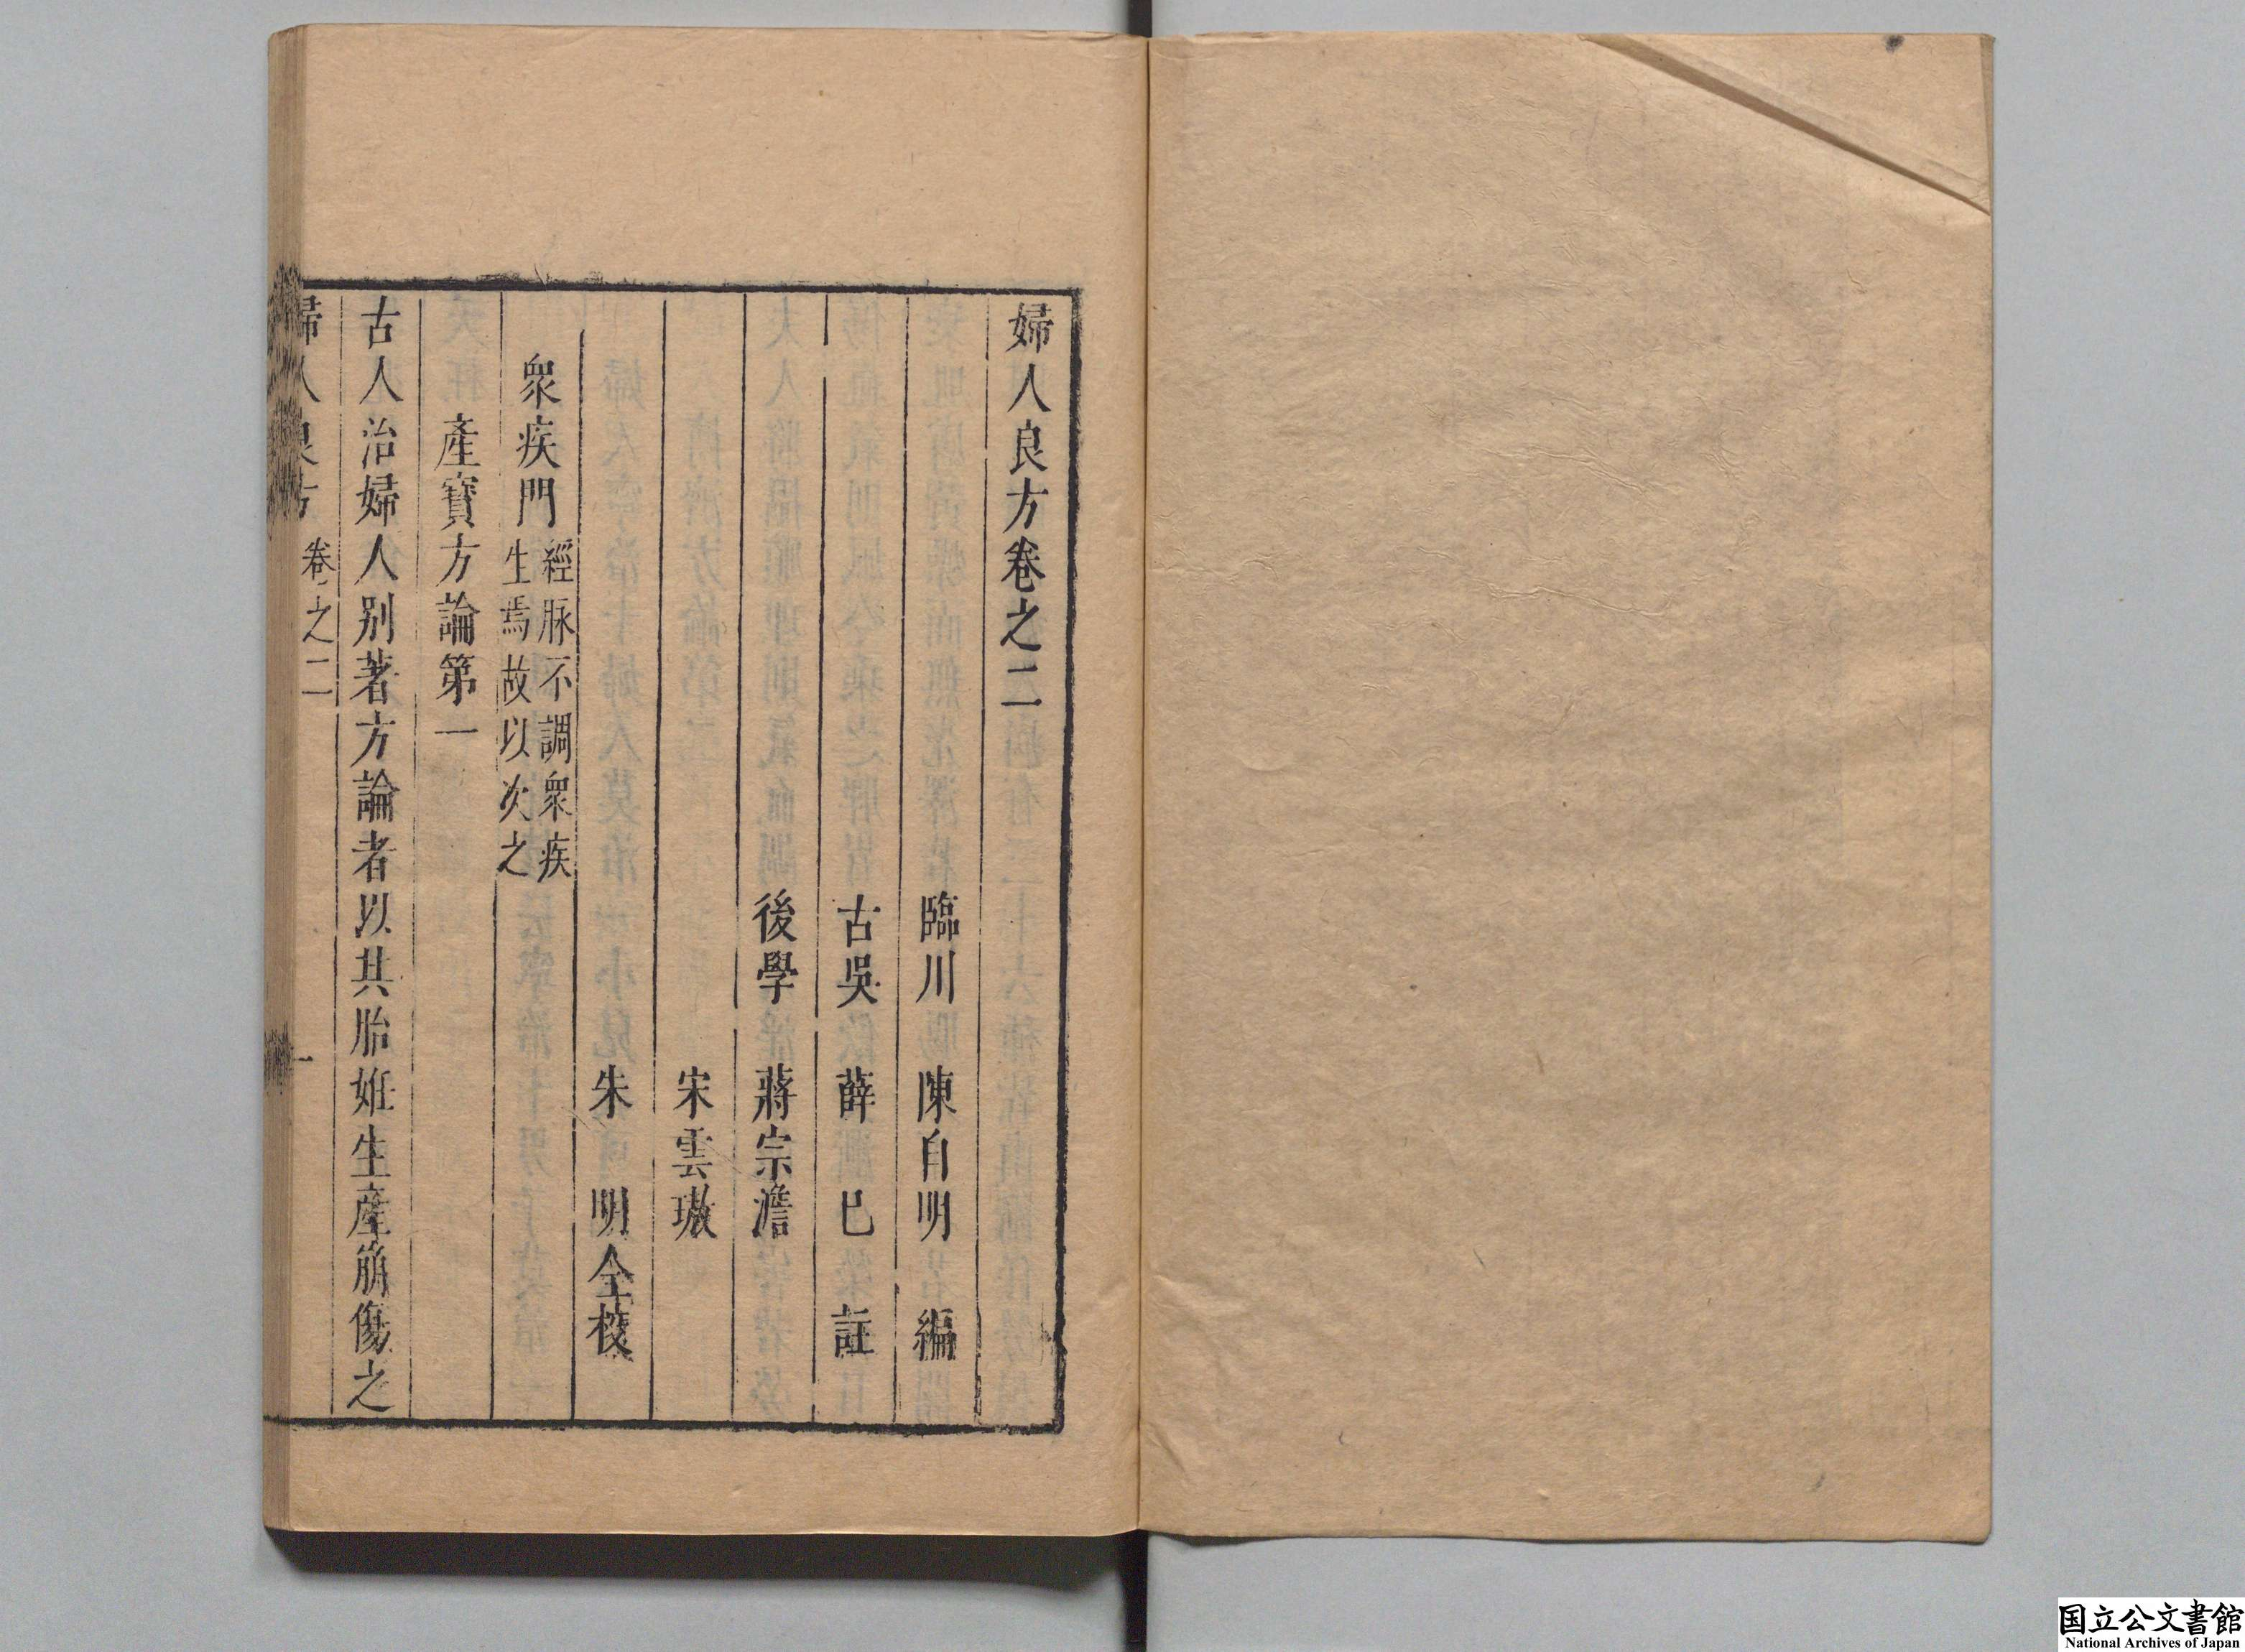 婦人良方卷之二
臨川 陳自明 編
古吳 薛 已 註
後學 蔣宗澹
宋雲璈
朱 明仝校
衆疾門 經脉不調衆疾
生焉故以次之
產寶方論第一
古人治婦人别著方論者以其胎姙生產崩傷之
婦人良方 卷之二 一
国立公文書館
National Archives of Japan